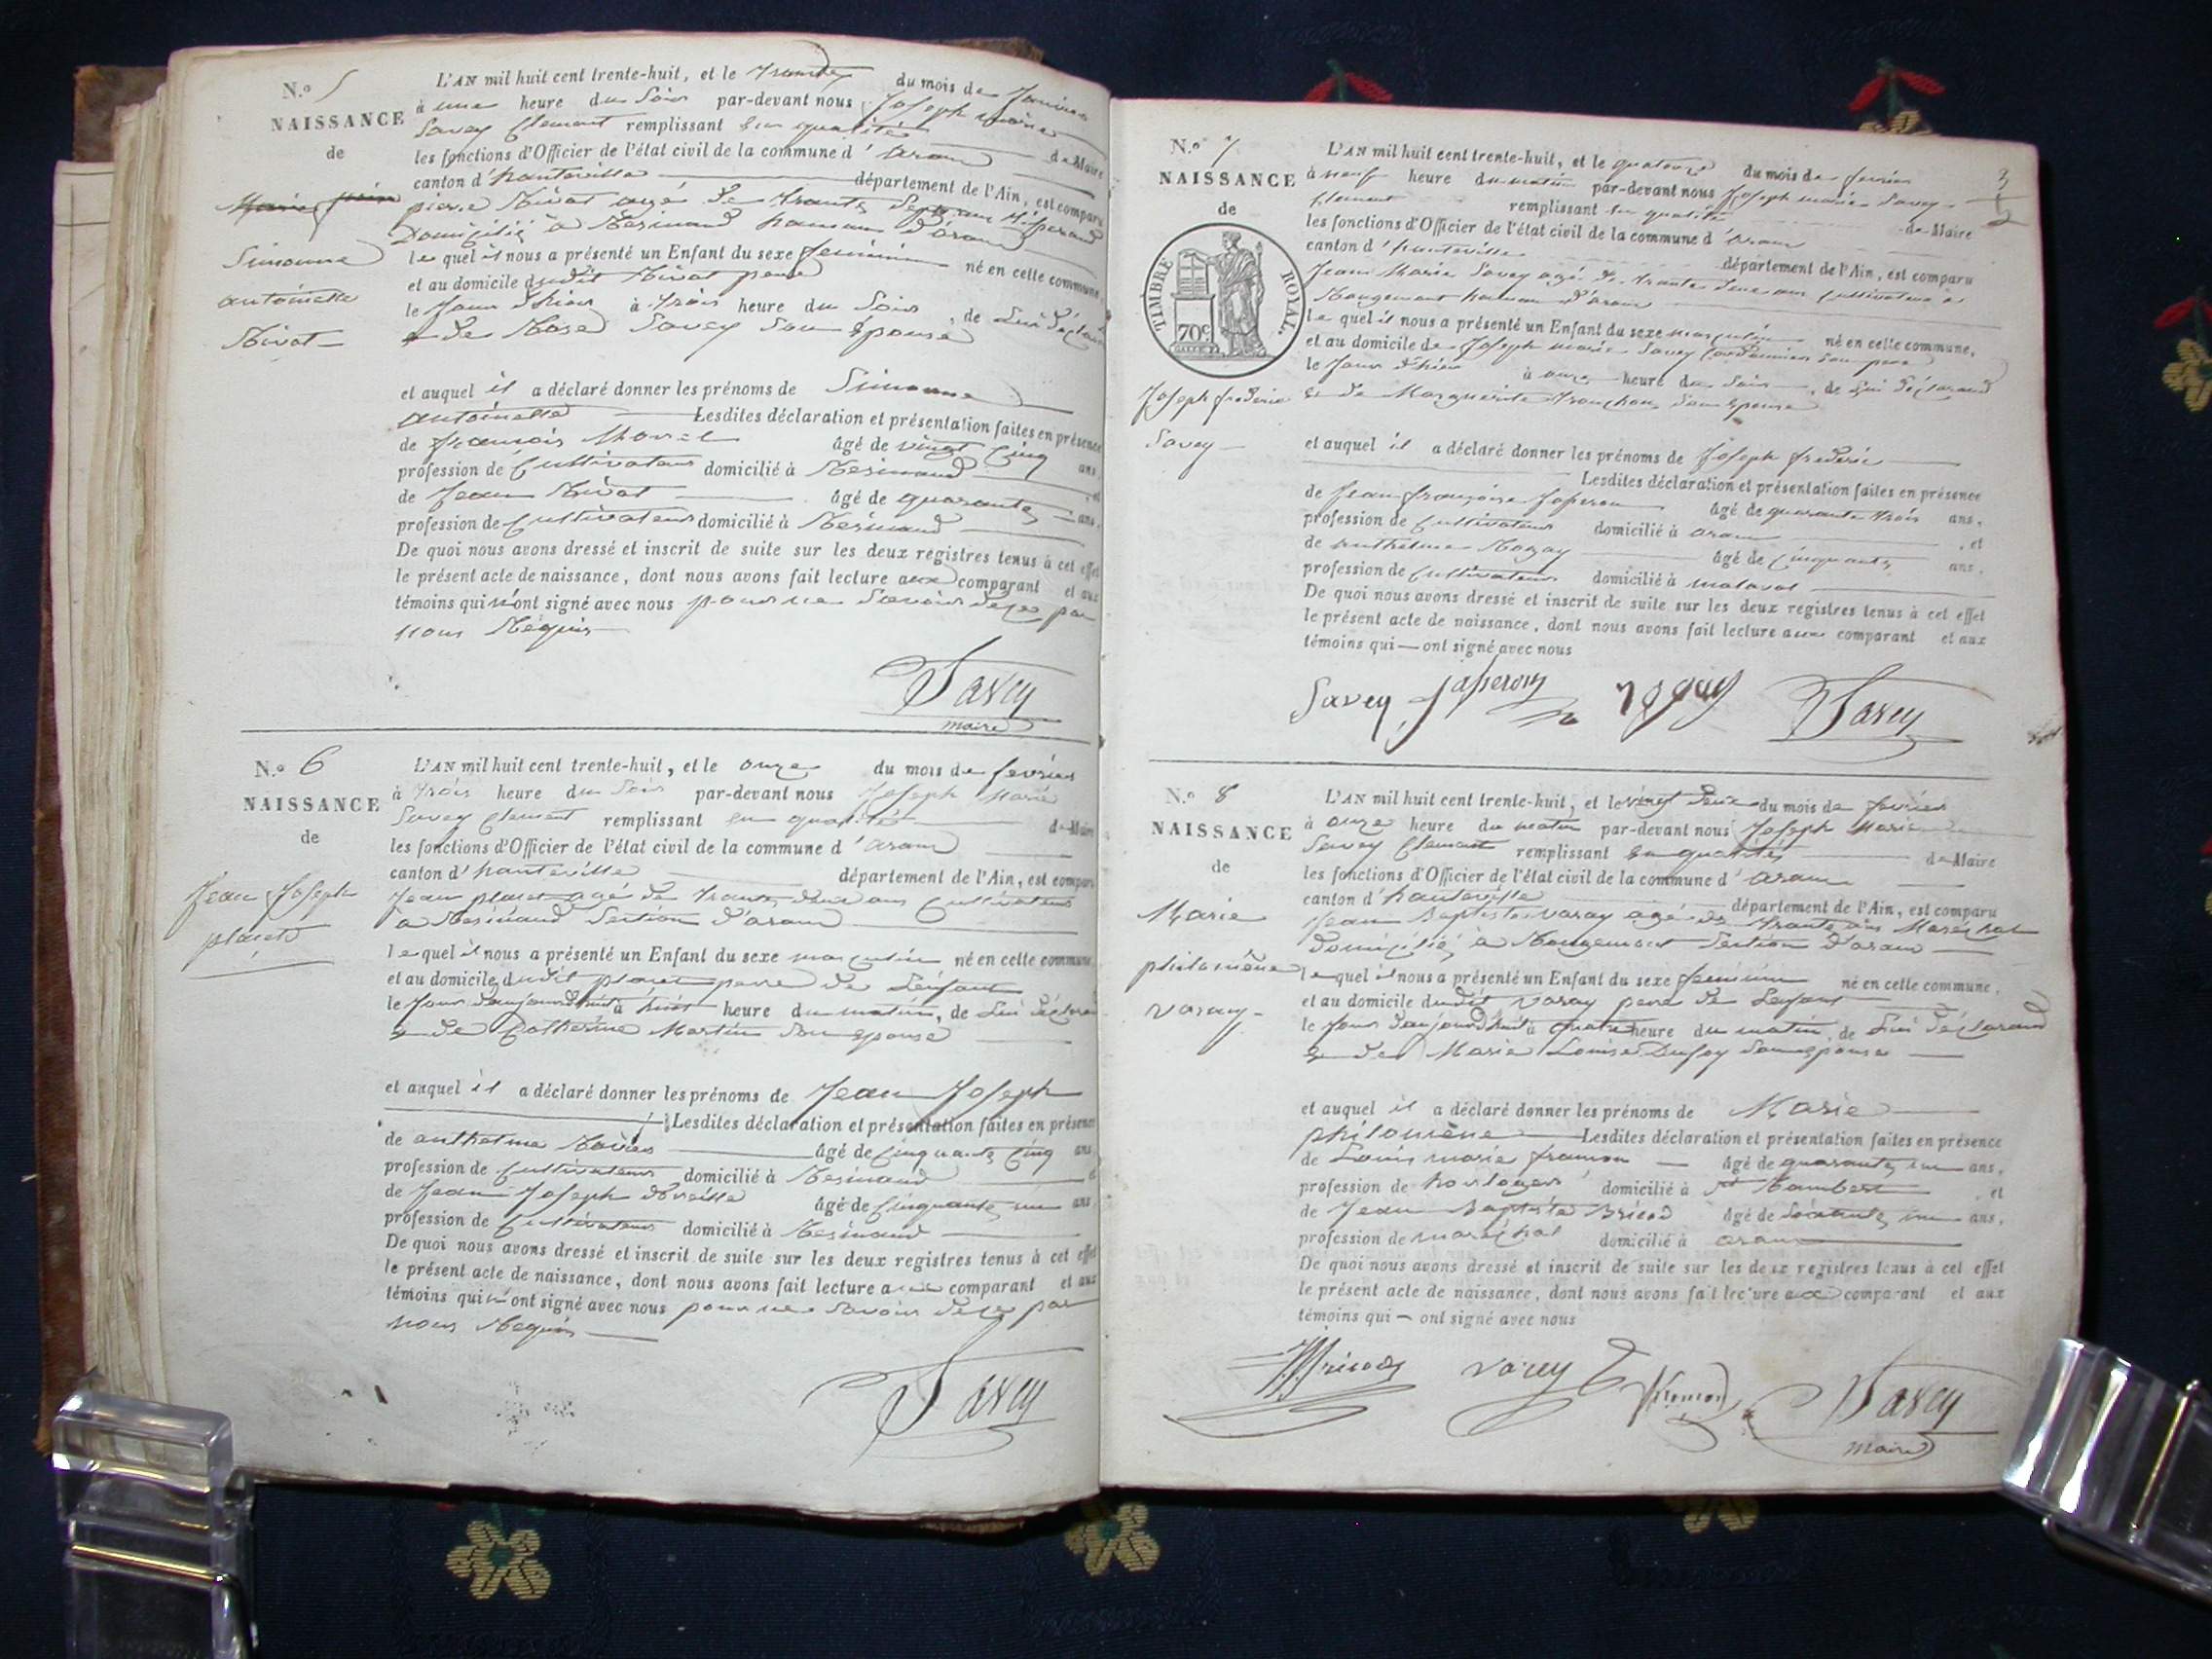 N.º 5
NAISSANCE
de
Simonne
antoinette
Nivat
L'AN mil huit cent trente-huit, et le du mois de Janvier
à une heure du Soir par-devant nous Joseph marie
Savey Clement remplissant en qualité de Maire
les fonctions d'Officier de l'état civil de la commune d'aran
canton d'hauteville département de l'Ain, est comparu
pierre Nivat agé de trante Sept ans
Domicilié à Resinand hameau d'aran
lequel il nous a présenté un Enfant du sexe feminin né en cette commune,
et au domicile dudit Nivat pere
le Jour d'hier à trois heure du Soir, de Lui déclarant
& de Rose Savey Son Epouse
et auquel il a déclaré donner les prénoms de Simonne
antoinette Lesdites déclaration et présentation faites en présence
de francois Morel âgé de vingt Cinq ans
profession de Cultivateur domicilié à Resinand, et
de Jean Nivat âgé de quarante ans,
profession de Cultivateur domicilié à Resinand
De quoi nous avons dressé et inscrit de suite sur les deux registres tenus à cet effet
le présent acte de naissance, dont nous avons fait lecture aux comparant et aux
témoins qui n'ont signé avec nous pour ne Savoir de ce par
nous Requis
Savey
maire
N.º 6
NAISSANCE
de
Jean Joseph
placet
L'AN mil huit cent trente-huit, et le onze du mois de fevrier
à trois heure du Soir par-devant nous Joseph Marie
Savey Clement remplissant en qualité de Maire
les fonctions d'Officier de l'état civil de la commune d'aran
canton d'hauteville département de l'Ain, est comparu
Jean placet agé de trante deux ans Cultivateur
à Resinand Section d'aran
lequel il nous a présenté un Enfant du sexe masculin né en cette commune,
et au domicile dudit placet pere de Lenfant
le Jour daujourdhuit à huit heure du matin, de Lui déclarant
& de Catherine Martin Son epouse
et auquel il a déclaré donner les prénoms de Jean Joseph
Lesdites déclaration et présentation faites en présence
de anthelme âgé de Cinquante Cinq ans
profession de Cultivateur domicilié à Resinand et
de Jean Joseph âgé de Cinquante un ans
profession de Cultivateur domicilié à Resinand
De quoi nous avons dressé et inscrit de suite sur les deux registres tenus à cet effet
le présent acte de naissance, dont nous avons fait lecture aux comparant et aux
témoins qui n'ont signé avec nous pour ne Savoir de ce par
nous Requis
Savey
N.º 7
NAISSANCE
de
TIMBRE ROYAL.
70c
Joseph frederic
Savey
L'AN mil huit cent trente-huit, et le quatorze du mois de fevrier
à neuf heure du matin par-devant nous Joseph marie Savey
Clement remplissant en qualité de Maire
les fonctions d'Officier de l'état civil de la commune d'aran
canton d'hauteville département de l'Ain, est comparu
Jean Marie Savey agé de trante deux ans Cultivateur à
Rougemont hameau d'aran
lequel il nous a présenté un Enfant du sexe masculin né en cette commune,
et au domicile de Joseph marie Savey Cordonnier Son pere
le Jour d'hier à onze heure du Soir, de Lui déclarand
& de Marguerite Son Epouse
et auquel il a déclaré donner les prénoms de Joseph frederic
Lesdites déclaration et présentation faites en présence
de Jean françoise Japeron âgé de quarante trois ans,
profession de Cultivateur domicilié à aran, et
de anthelme Rogay âgé de Cinquante ans,
profession de Cultivateur domicilié à malaval
De quoi nous avons dressé et inscrit de suite sur les deux registres tenus à cet effet
le présent acte de naissance, dont nous avons fait lecture aux comparant et aux
témoins qui — ont signé avec nous
Savey Japeron Savey
N.º 8
NAISSANCE
de
Marie
philomène
varay
L'AN mil huit cent trente-huit, et le vingt deux du mois de fevrier
à onze heure du matin par-devant nous Joseph Marie
Savey Clement remplissant en qualité de Maire
les fonctions d'Officier de l'état civil de la commune d'aran
canton d'hauteville département de l'Ain, est comparu
Jean Baptiste varay agé de trante ans Maréchal
domicilié à Rougemont Section d'aran
lequel il nous a présenté un Enfant du sexe feminin né en cette commune,
et au domicile dudit varay pere de Lenfant
le Jour daujourdhuit à quatre heure du matin, de Lui déclarand
& de Marie Louise Dufoy Son epouse
et auquel il a déclaré donner les prénoms de Marie
philomène Lesdites déclaration et présentation faites en présence
de Louis marie framon âgé de quarante un ans,
profession de horloger domicilié à St Rambert, et
de Jean Baptiste Bricod âgé de Soixante un ans,
profession de maréchal domicilié à aran
De quoi nous avons dressé et inscrit de suite sur les deux registres tenus à cet effet
le présent acte de naissance, dont nous avons fait lecture aux comparant et aux
témoins qui — ont signé avec nous
Bricod varey Savey
maire